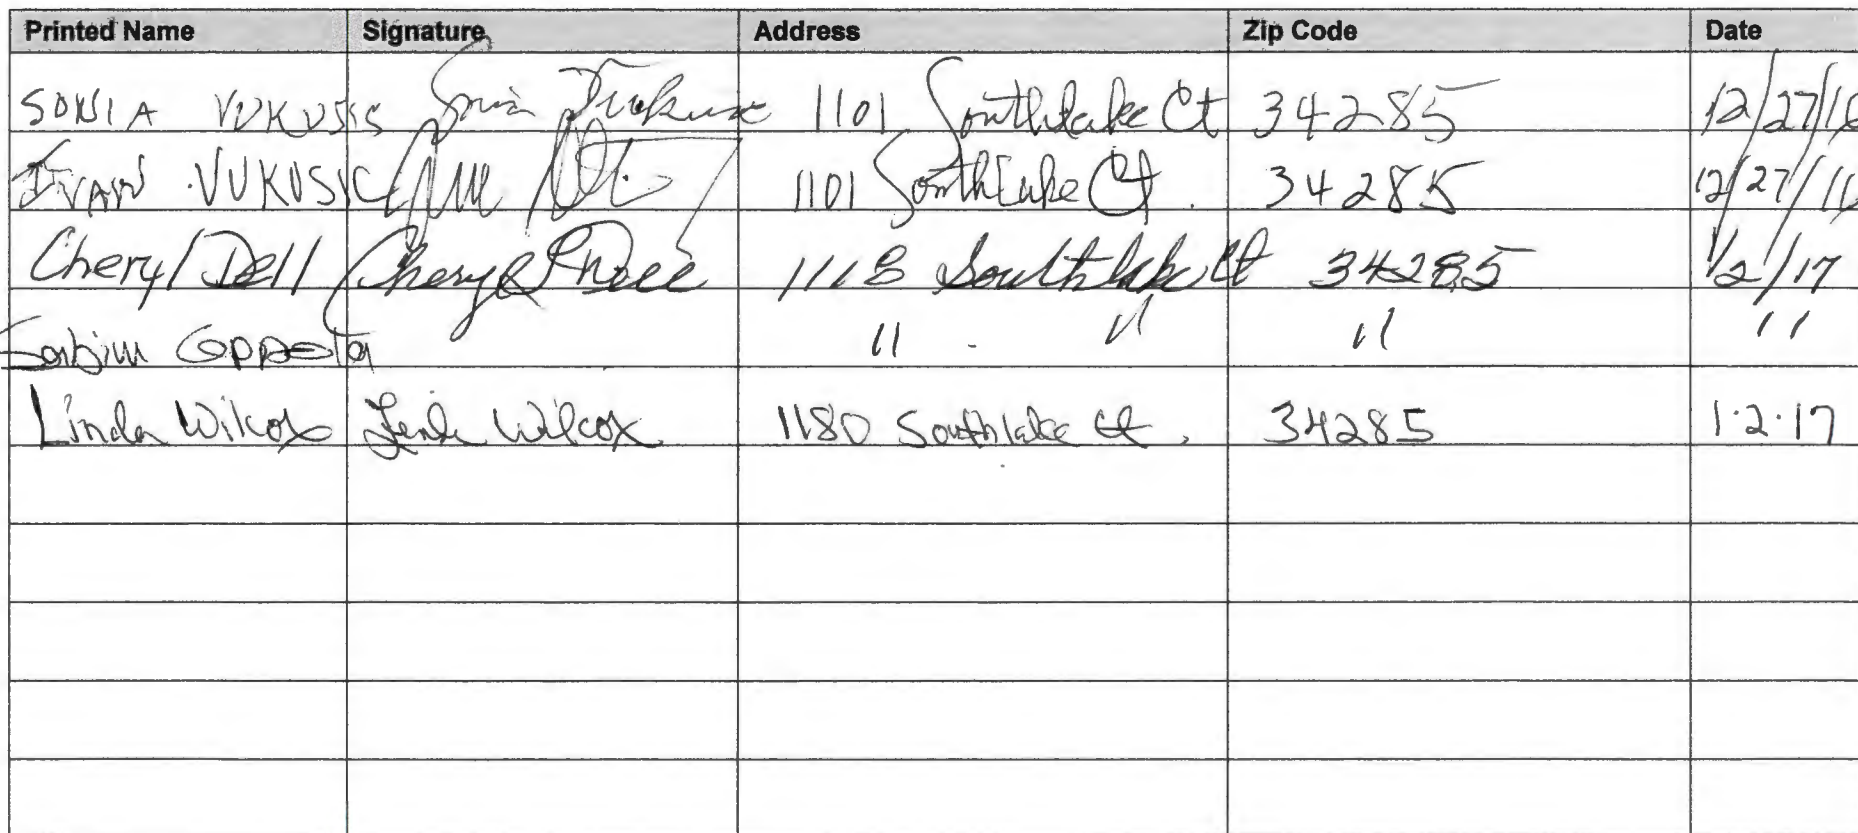 Printed Name Signature Address Zip Code Date
SONIA VUKUSIC 1101 Southlake Ct 34285 12/27/16
IVAN VUKUSIC 1101 Southlake Ct. 34285 12/27/16
Cheryl Dell Cheryl Dell 1118 Southlake Ct 34285 1/2/17
" " " "
Linda Wilcox Linda Wilcox 1180 Southlake Ct. 34285 1·2·17